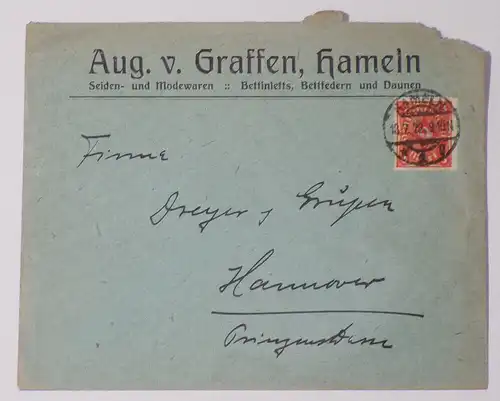 Aug. v. Graffen, Hameln
Seiden- und Modewaren :: Bettinletts, Bettfedern und Daunen
HAMELN
Firma
Dreyer & Grüpen
Hannover
Prinzenstrasse